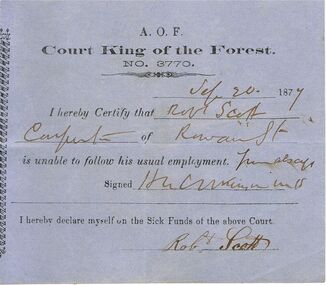 A. O. F.
Court King of the Forest.
NO. 3770.
Sep 20. 1877
I hereby Certify that Robt Scott
of Rowan St
is unable to follow his usual employment.
Signed
I hereby declare myself on the Sick Funds of the above Court.
Robt Scott